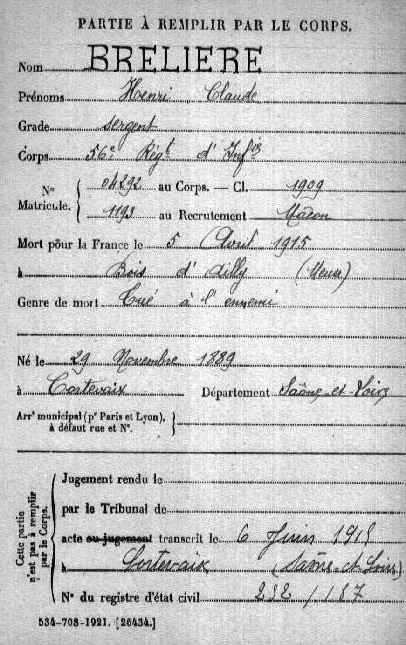 PARTIE À REMPLIR PAR LE CORPS.
Nom BRELIERE
Prénoms Henri Claude
Grade sergent
Corps 56e Régt d'Infie
Nº Matricule. { 04292 au Corps. — Cl. 1909
1193 au Recrutement Mâcon
Mort pour la France le 5 Avril 1915
à Bois d'Ailly (Meuse)
Genre de mort Tué à l'ennemi
Né le 29 Novembre 1889
à Cortevaix Département Saône-et-Loire
Arrt municipal (pr Paris et Lyon), à défaut rue et Nº. }
Cette partie n'est pas à remplir par le Corps.
Jugement rendu le
par le Tribunal de
acte ou jugement transcrit le 6 Juin 1915
à Cortevaix (Saône-et-Loire)
Nº du registre d'état civil 232/187
534-708-1921. [26434.]